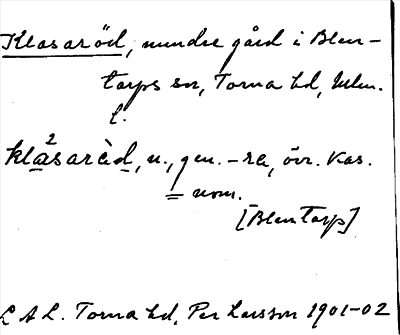 Klasaröd, mindre gård i Blen-
tarps sn, Torna hd, Mlm.
L.
kla²sarèd, n., gen. -re, övr. kas.
= nom.
[Blentarp]
L A L. Torna hd, Per Larsson 1901-02